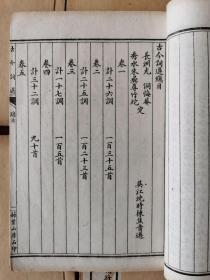 古今詞選總目
長洲尤 侗悔菴
秀水朱彝尊竹垞 定
吳江沈時棟焦音選
卷一
計二十六調 一百五首
卷二
計二十三調 一百二十三首
卷三
計一十七調 一百五首
卷四
計三十二調 九十首
卷五
古今詞選 總目
一 掃葉山房石印